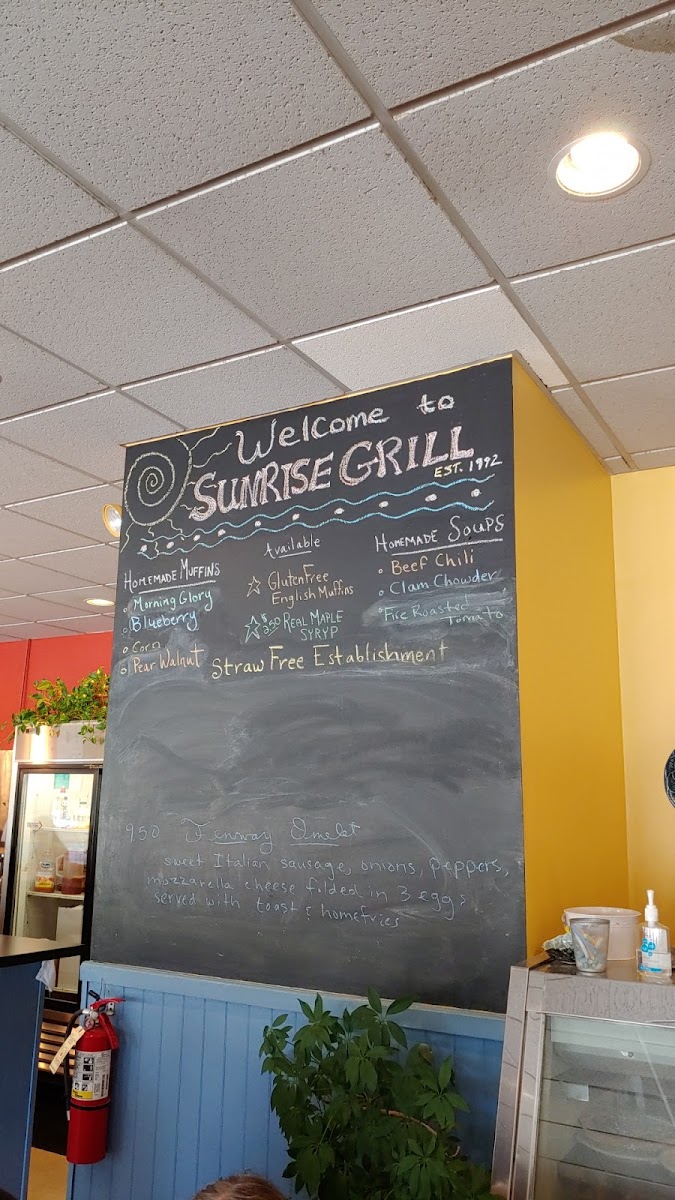 Welcome to
SUNRISE GRILL
EST. 1992
HOMEMADE MUFFINS
Morning Glory
Blueberry
Corn
Pear Walnut
Available
Gluten Free
English Muffins
$.50 REAL MAPLE
SYRYP
HOMEMADE SOUPS
Beef Chili
Clam Chowder
Fire Roasted
Tomato
Straw Free Establishment
9.50 Fenway Omelet
sweet Italian sausage, onions, peppers,
mozzarella cheese folded in 3 eggs
served with toast & homefries